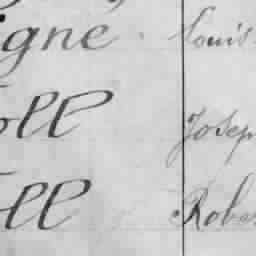 igne Louis
oll Joseph
ell Rober